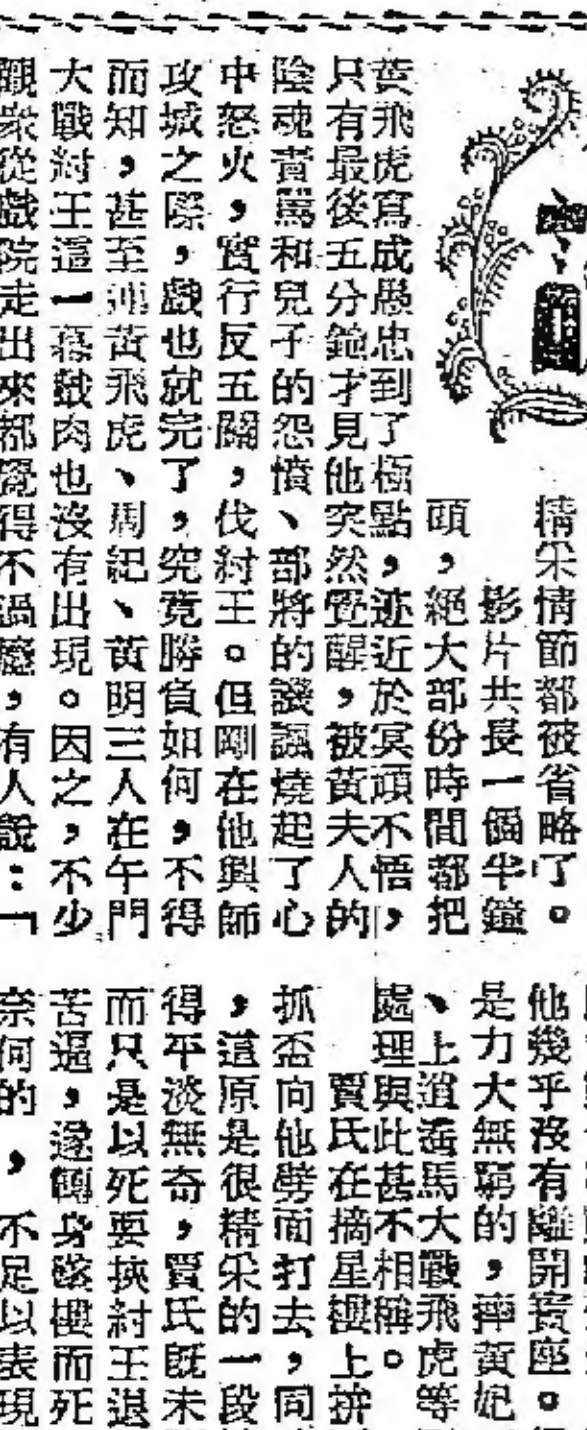 精采情節都被省略了。
影片共長一個半鐘
頭，絕大部份時間都把
黃飛虎寫成愚忠到了極點，迹近於冥頑不悟，
只有最後五分鐘才見他突然覺醒，被黃夫人的
陰魂責罵和兒子的怨憤、部將的譏諷燒起了心
中怒火，實行反五關，伐紂王。但剛在他興師
攻城之際，戲也就完了，究竟勝負如何，不得
而知，甚至連黃飛虎、周紀、黃明三人在午門
大戰紂王這一幕戲肉也沒有出現。因之，不少
觀衆從戲院走出來都覺得不過癮，有人說：「
他幾乎沒有離開寳座。
是力大無窮的，摔黃妃
、上逍遙馬大戰飛虎等
處理與此甚不相稱。
賈氏在摘星樓上拚
抓盃向他劈面打去，同
，這原是很精采的一段
得平淡無奇，賢氏既未
而只是以死要挾紂王退
苦逼，遂傾身墜樓而死
奈何的，不足以表現